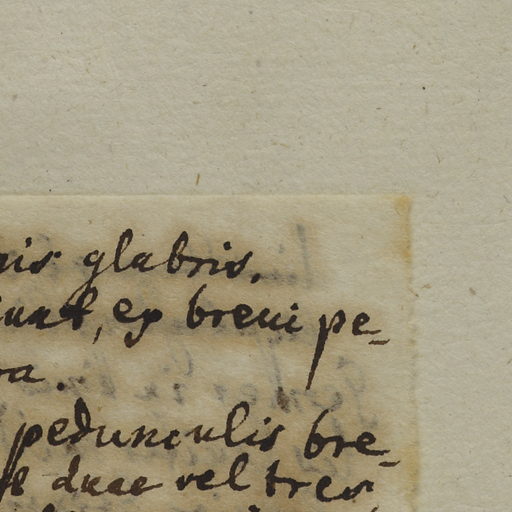 nis glabris,
iunt, ex breui pe-
ra.
pedunculis bre-
duae vel tres